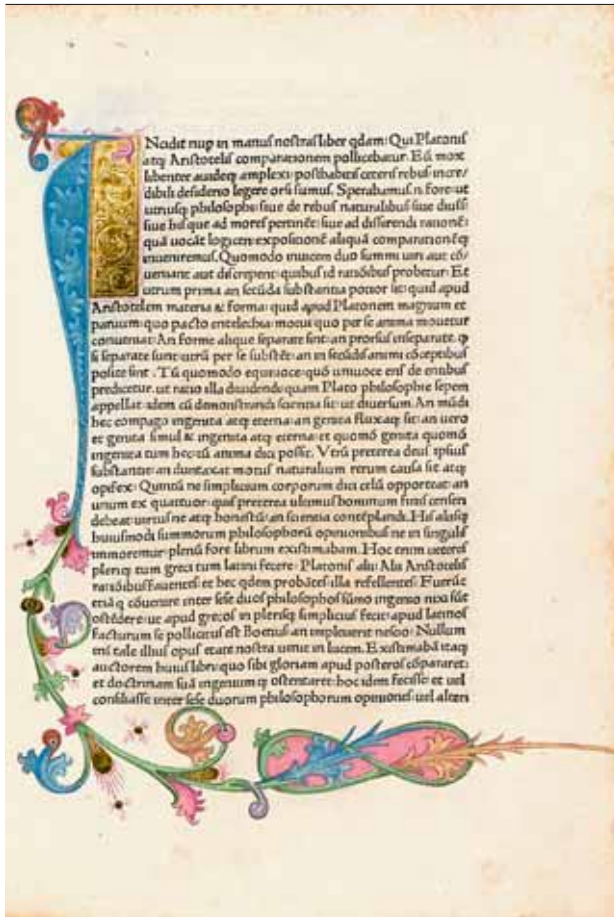 Ncidit nup in manus nostras liber qdam: Qui Platonis
atq; Aristotelis comparationem pollicebatur. Eū mox
libenter auideq; amplexi: posthabitis ceteris rebus incre/
dibili desiderio legere orsi sumus. Sperabamus.n. fore: ut
utriusq; philosophi: siue de rebus naturalibus siue diuis
siue his que ad mores pertinēt: siue ad disserendi rationē:
quā uocāt logicen: expositionē aliquā comparationēq;
inueniremus. Quomodo inuicem duo summi uiri aut cō/
ueniant aut discrepent: quibus id ratiōibus probetur: Et
utrum prima an secūda substantia potior sit: quid apud
Aristotelem materia & forma: quid apud Platonem magnum et
paruum: quo pacto entelechia: motu quo per se anima mouetur
conueniat: An forme alique separate sint: an prorsus inseparate. q
si separate sunt: utrū per se substēt: an in secūdis animi cōceptibus
posite sint. Tū quomodo equiuoce: quō uniuoce ens de entibus
predicetur. ut ratio illa diuidendi: quam Plato philosophie sepem
appellat: idem cū demonstrandi scientia sit: ut diuersum. An mūdi
hec compago ingenita atq; eterna: an genita fluxaq; sit: an uero
et genita simul & ingenita atq; eterna: et quomō genita quomō
ingenita tum hec: tū anima dici possit. Vtrū preterea deus ipsius
substantie: an duntaxat motus naturalium rerum causa sit atq;
opifex: Quintū ne simplicium corporum dici celū opporteat: an
unum ex quattuor: quis preterea ulimus hominum finis censeri
debeat: uirtus ne atq; honestū: an scientia contēplandi. His aliisq;
huiusmodi summorum philosophorū opinionibus ne in singulis
immoremur: plenū fore librum existimabam. Hoc enim ueteres
pleriq; tum greci tum latini fecere: Platonis alii: Alii Aristotelis
ratiōibus fauentes: et hec qdem probātes: illa refellentes: Fuerūt
etiā q cōuenire inter sese duos philosophos sūmo ingenio nixi sūt
ostēdere: ut apud grecos in plerisq; simplicius fecit: apud latinos
facturum se pollicitus est Boetius: an impleuerit nescio: Nullum
eni tale illius opus etate nostra uenit in lucem. Existimabā itaq;
auctorem huius libri: quo sibi gloriam apud posteros cōpararet:
et doctrinam suā ingenium q; ostentaret: hoc idem fecisse: et uel
consiliasse inter sese duorum philosophorum opiniones: uel alteri